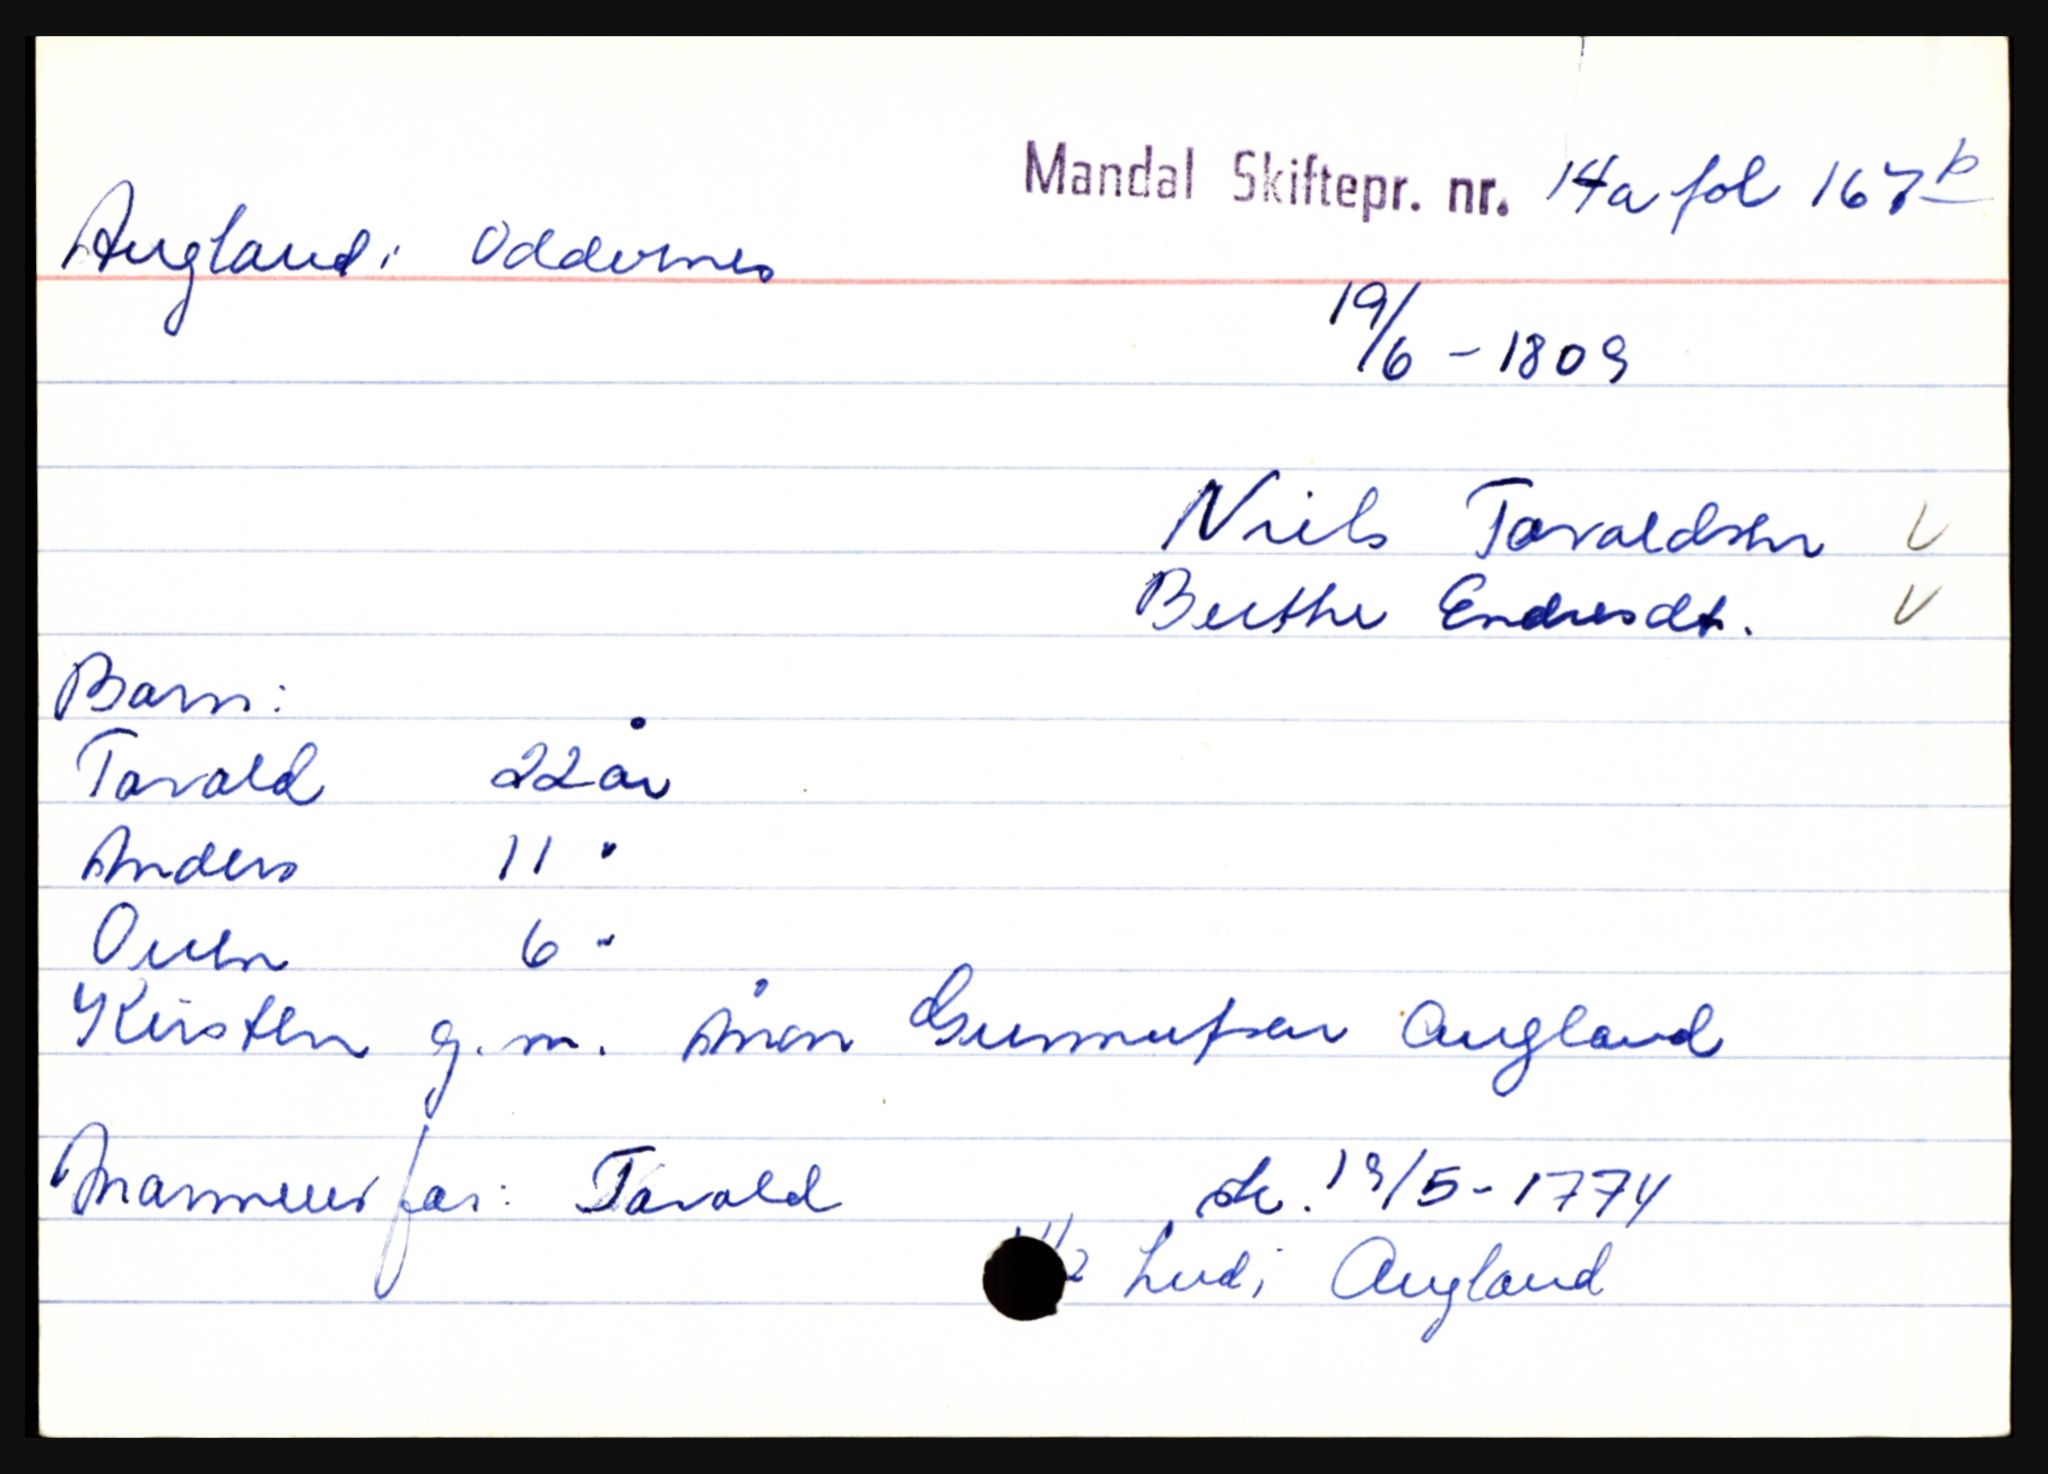 Mandal Skiftepr. nr. 14a fol 167 b
Augland i Oddernes
19/6 - 1809
Niels Tavaldsen V
Berthe Endresdt. V
Barn:
Tavald 22 år
Anders 11 "
Ouen 6 "
Kirsten g. m. Aanen Gunnufsen Augland
Mannens far: Tavald sk. 19/5 - 1774
/2 hud i Augland